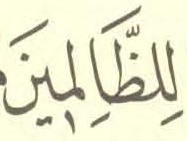 لِلظَّالِمِينَ